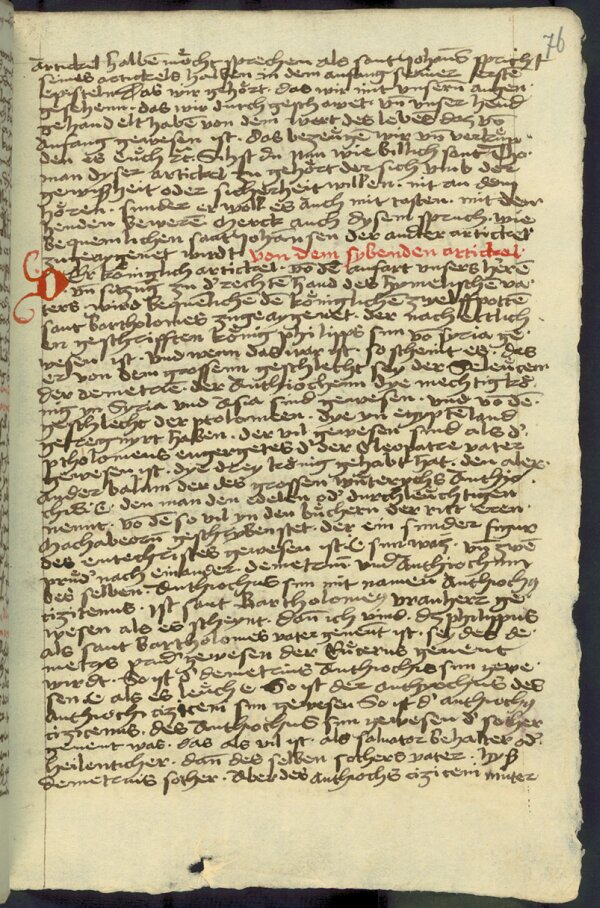 76
artickel halben mocht sprechen als sant Johans spricht
seines artickels halben in dem anfang seiner erste
episteln Das wir gehort. das wir mit unsern augen.
gesehenn. das wir durch geschawet. vn unser hend
gehandelt haben von dem wort des lebes dz vo
anfang gewesen ist. das bezeuge wir vn verkun-
den es euch rc. Sihst du nun wie billich sant Tho-
man dyser artickel zu gehort der sich umb der
gewißheit oder sicherheit willen. nit an dem
horen. sunder er woll es auch mit tasten. mit dem
henden beweren Merck auch dysem spruch. wie
bequemlichen sant Johansen der ander artickel
zugeaygenet wirdt von dem sybenden artickel.
Der koniglich artickel. vo de aufart unsers heren
vn sitzung zu d' rechten hand des hymelische va-
ters. wird bequenliche de konigliche zwelfpotten
sant Bartholomes zugeaygenet. der nach etlich
en geschrifften konig philipps sun vo Syria ge-
wesen ist. Und wenn das war ist. so scheint es. das
er von dem grossenn geschlecht sey der Seleucem
der demetrien. der Anthiochenn dye mechtig ko-
nig yn Syria und Asia sind gewesen. und vo de.
geschlecht der ptolomeen. dye yn egypteland
geregnyrt haben. der vil gewesen sind als d'
ptholomeus euergetes d' der Cleopatre vater
gewesen ist. dye drey konig gehabt hat. den alex-
ander balam der des grossen wutterichs Anthio-
chus. den man den edelen od' durchleuchtigen
nennt. vo de so vil yn den buchern der ritt eren.
Machabeorn geschrybenstet. der ein sunder figur
des entechristes gewesen ist sun was. vn zwe
prud' nach einander. demetrium und Anthiochum
des selben. Anthiochus sun mit namen Anthiochus
cizicenus. Ist sant Bartholomey uranherr ge-
wesen als es scheynt. dan ich vind. dz philippus
als sant bartholomes vater genent ist. sey des de-
metrius prud' gewesen der Eucerus genent
wirdt. So ist d' demetrius Anthiochus sun gewe-
sen als es leucht. So ist der anthiochus des
Anthiochi ciziceni sun gewesen So ist d' anthiochus
cizicenus. des Anthiochus sun gewesen d' sother
genent was. das als vil ist. als salvator behalter od'
heilenticher. dan des selben sothers vater. hyß
demetrius sother. Aber des Anthiochus ciziceni muter